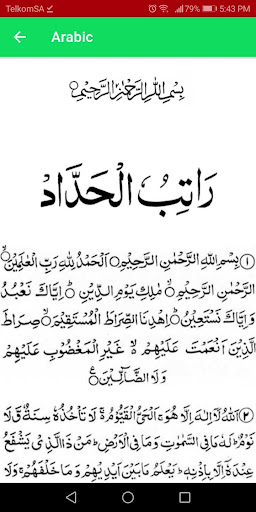 TelkomSA 79% 5:43 PM
Arabic
بِسْمِ اللهِ الرَّحْمٰنِ الرَّحِيْمِ
رَاتِبُ الْحَدَّادْ
﴿١﴾ بِسْمِ اللهِ الرَّحْمٰنِ الرَّحِيْمِ۝ اَلْحَمْدُ لِلهِ رَبِّ الْعٰلَمِيْنَ۝
الرَّحْمٰنِ الرَّحِيْمِ۝ مٰلِكِ يَوْمِ الدِّيْنِ۝ اِيَّاكَ نَعْبُدُ
وَاِيَّاكَ نَسْتَعِيْنُ۝ اِهْدِنَا الصِّرَاطَ الْمُسْتَقِيْمَ۝ صِرَاطَ
الَّذِيْنَ اَنْعَمْتَ عَلَيْهِمْ ۙ غَيْرِ الْمَغْضُوْبِ عَلَيْهِمْ
وَلَا الضَّآلِّيْنَ۝
﴿٢﴾ اَللهُ لَا اِلٰهَ اِلَّا هُوَ ۚ اَلْحَيُّ الْقَيُّوْمُ ۚ لَا تَأْخُذُهٗ سِنَةٌ وَّلَا
نَوْمٌ ؕ لَهٗ مَا فِى السَّمٰوٰتِ وَمَا فِى الْاَرْضِ ؕ مَنْ ذَا الَّذِىْ يَشْفَعُ
عِنْدَهٗ اِلَّا بِاِذْنِهٖ ؕ يَعْلَمُ مَا بَيْنَ اَيْدِيْهِمْ وَمَا خَلْفَهُمْ ۚ وَلَا